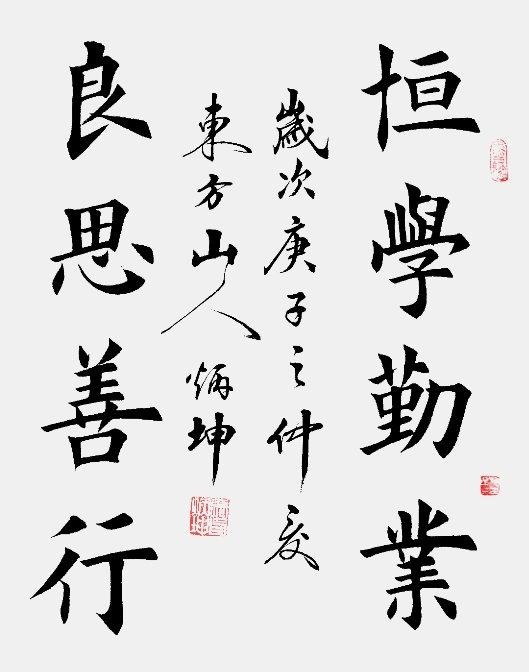 恒學勤業
歲次庚子之仲夏
東方山人炳坤
良思善行